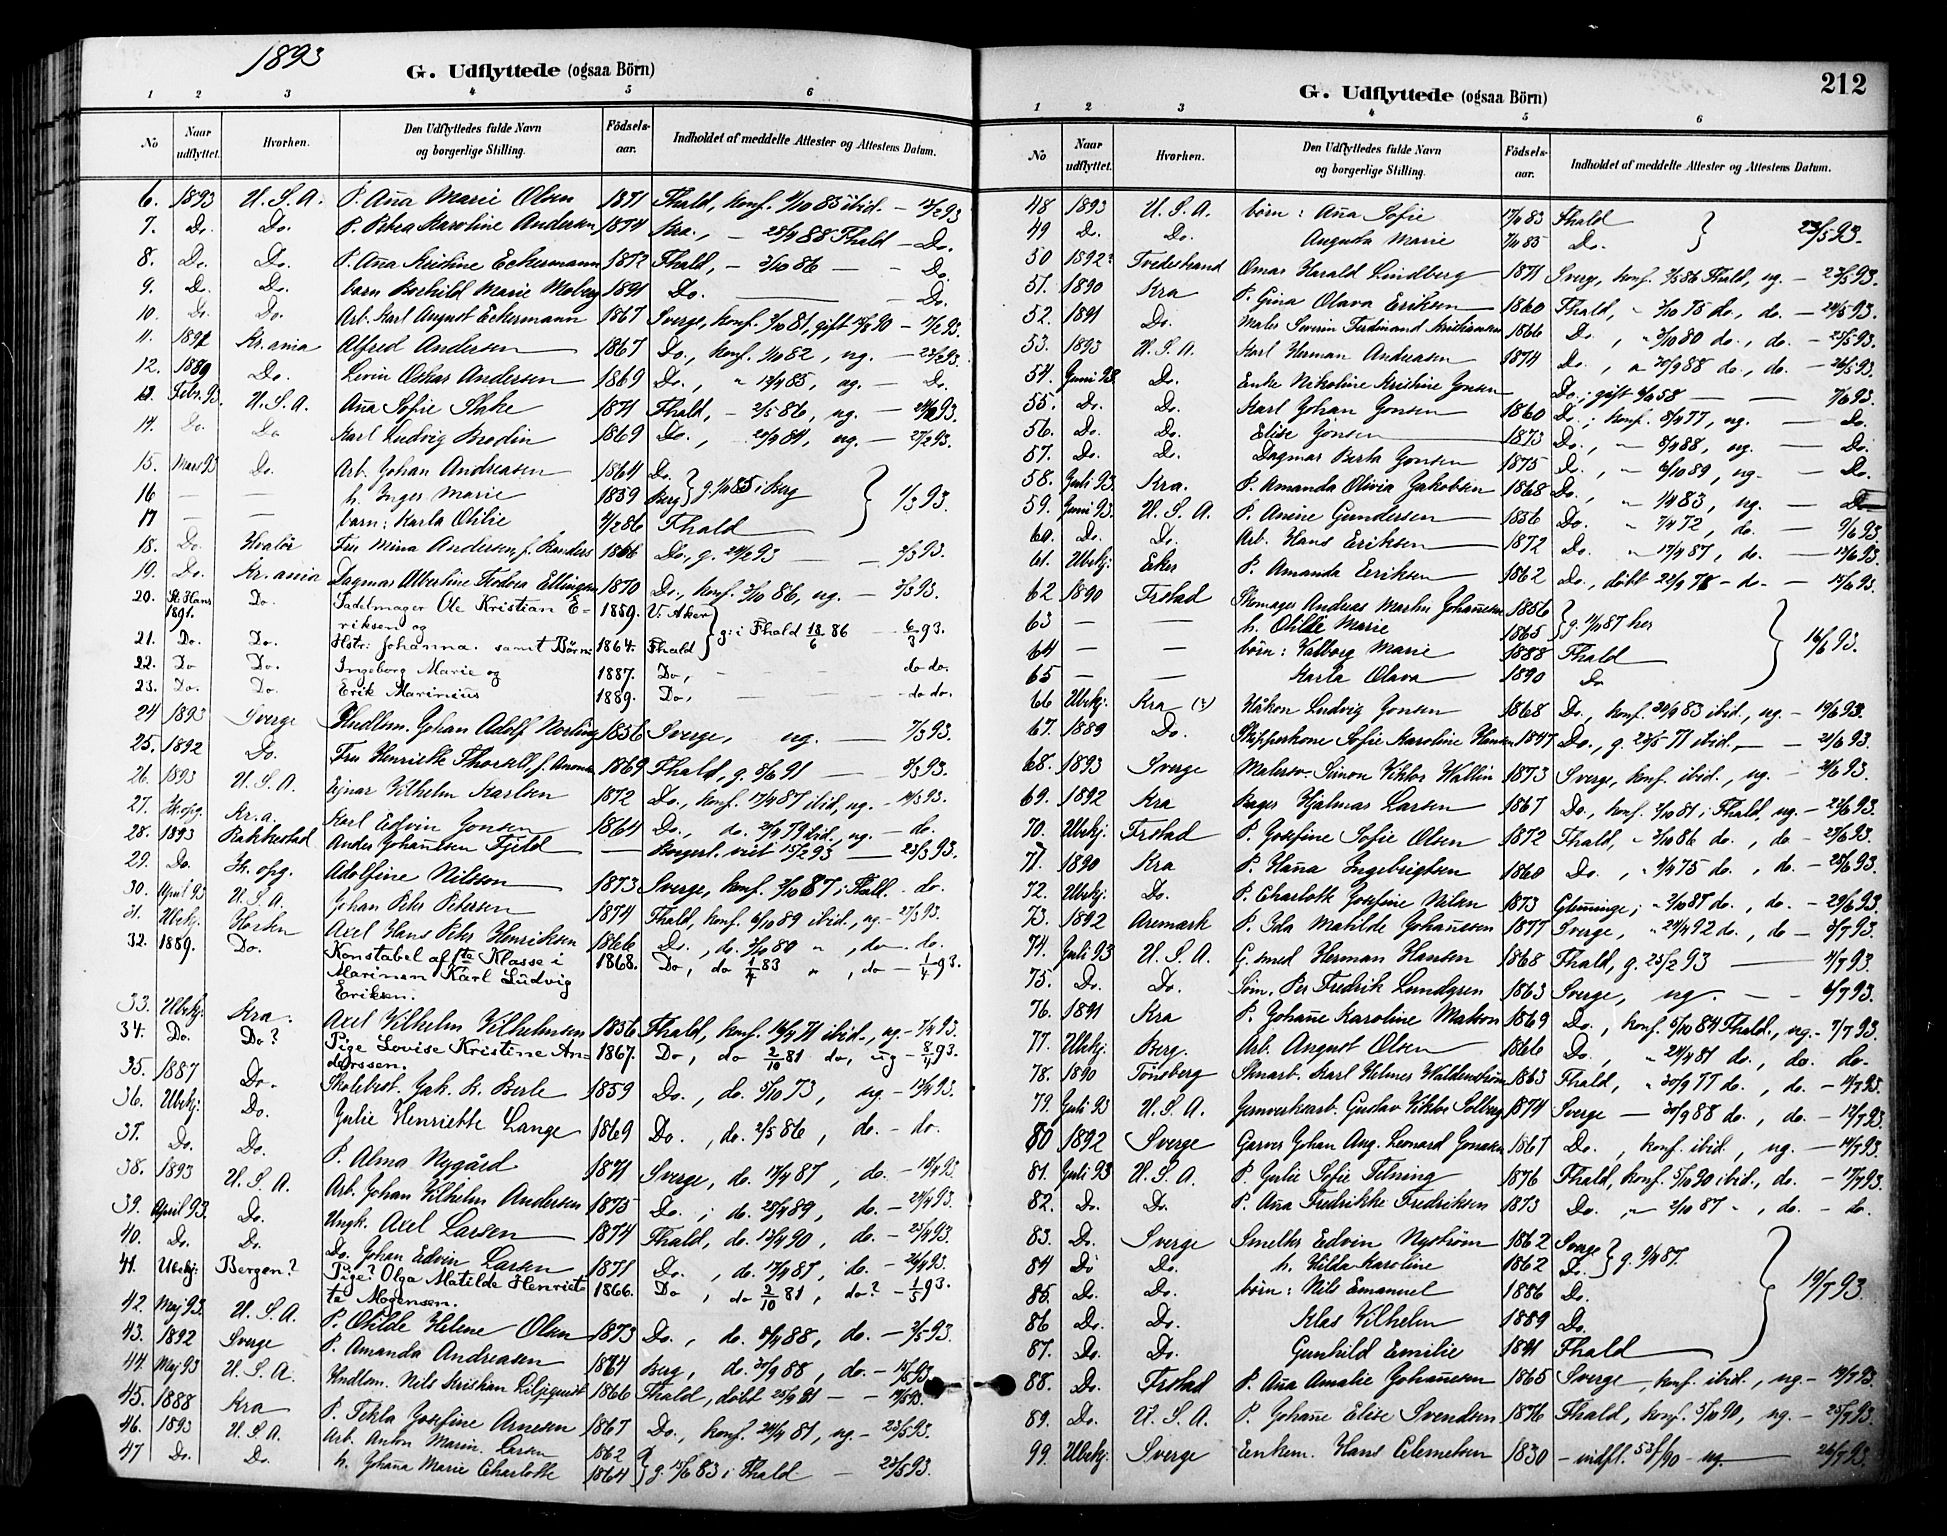 1893
G. Udflyttede (ogsaa Börn)
1 2 3 4 5 6
No
Naar udflyttet.
Hvorhen.
Den Udflyttedes fulde Navn og borgerlige Stilling.
Födsels-aar.
Indholdet af meddelte Attester og Attestens Datum.
6. 1893 U. S. A. P. Aña Marie Olsen 1871 Fhald, konf. 1/10 85 ibid. —
7. Do. Do. P. Petrea Karoline Andersen 1874 Kra., — Fhald — Do.
8. Do. Do. P. Aña Kristine Eckermann 1872 Fhald, — 3/10 86 — Do.
9. Do. Do. barn Borhild Marie Moberg 1891 Do. — Do.
10. Do. Do. Arb. Karl August Eckermann 1867 Sverge, konf. 2/10 81, gift
11. Kr.ania Alfred Andersen 1867 Do., konf. 1/10 82, ug. —
12. 1889 Do. Levin Oskar Andersen 1869 Do., " 85, ug. — Do.
13. Febr. 93. U. S. A. Aña Sofie Slake 1871 Fhald, — 2/5 86, ug. —
14. Do. Do Karl Ludvig Brodin 1869 Do., ug. — 27/2 93.
15. Marts 93 Do. Arb. Johan Andreasen 1864 Do.
16 — — h. Inger Marie 1859 Berg g. i Berg 1/3 93.
17 — — barn: Karla Otilie 86 Fhald
18. Do. Hvalör Fru Mina Andersen, f. Randers Do., g. — 2/3 93.
19. Do. Kr.ania Dagmar Albertine Teodora Ellingsen 1870 Do., konf. 3/10 86, ug. — 2/3 93.
20. St. Hans 1891. Do. Sadelmager Ole Kristian E-riksen og 1859. V. Aker
g: i Fhald 18/6 86 — 6/3 93.
21. Do. Do. Hstr: Johanna. samt Börn: 1864. Fhald
22. Do Do. Ingeborg Marie og 1887. Do, — do do.
23. Do. Do. Erik Marinius 1889. Do, — do do.
24 1893 Sverge Hndlsm. Johan Adolf Norling 1856 Sverge, ug. — 7/3 93.
25. 1892 Do. Fru Henriette Thorsell, f. 1869 Fhald, g. 91 —
26. 1893 U. S. A. Ejnar Vilhelm Karlsen 1872 Do., konf. 87 ibid, ug. —
27. Kr.a. Karl Edvin Jonsen 1864 Do., do. 79 ibid, ug. — do.
28. 1893 Rakkestad Anders Johannesen Fjeld — Borgerl. viet 15/2 93 — 23/3 93.
29. Do. Adolfine Nilsson 1873 Sverge, konf. 2/10 87 i Fhald. do.
30. April 93 U. S. A. Johan Petr Petersen 1874 Fhald, konf. 6/10 89 ibid., ug. — 27/3 93.
31. Ubekj. Horten Axel Hans Petr Henriksen 1866 Do., do. 3/10 80 ", do — do.
32. 1889. Do. Konstabel af 1ste Klasse i Marinen Karl Ludvig Eriksen. 1868. Do, do 1/4 83 ", do — 1/4 93.
33. Ubekj. Kra. Axel Vilhelm Vilhelmsen 1856 Fhald, konf. 71 ibid., ug. — 7/4 93.
34. Do. Do? Pige Lovise Kristine An-derssen. 1867. Do, do 2/10 81 do, ug — 8/4 93.
35. 1887 Do. Skolebest. Jak. K. Berle 1859 Do., do. 5/10 73, ug. —
36. Ubekj. Do. Julie Henriette Lange 1869 Do., do. 2/5 86, do. — do.
37. Do. Do. P. Alma Nygård 1871 Sverge, do. 87, do. —
38. 1893 U. S. A. Arb. Johan Vilhelm Andersen 1875 Do., do. 89, do. —
39. April 93. Do. Ungk. Axel Larsen 1874 Fhald, do. 90, do. —
40. Do. Do. Do. Johan Edvin Larsen 1871 Do., do. 87, do. —
41. Ubekj. Bergen? Pige? Olga Matilde Henriet-te Mogensen. 1866. Do, do 2/10 81, do? — 1/5 93.
42. Maj 93. U. S. A. P. Otilde Helene Olsen 1873 Do., do. 88, do. — 2/5 93.
43. 1892 Sverge P. Amanda Andreasen Berg, do. 30/9 88, do. —
44. Maj 93 U. S. A. Hndlsm. Nils Kristian Liljequist 1866 Fhald, döbt 81 —
45. 1888 Kra P. Tekla Josefine Arnesen 1867 Do., konf. 81, ug. — 23/5 93.
46. 1893 U. S. A. Arb. Anton Marin. Larsen 1862
47 Do. Do. h. Johaña Marie Charlotte 1864 g. 83 i Fhald —
212
G. Udflyttede (ogsaa Börn)
1 2 3 4 5 6
No
Naar udflyttet.
Hvorhen.
Den Udflyttedes fulde Navn og borgerlige Stilling.
Födsels-aar.
Indholdet af meddelte Attester og Attestens Datum.
48 1893 U. S. A. börn: Aña Sofie 83 Fhald
49 Do. Do. Augusta Marie 85 Do.
50 1892? Tvedestrand Omar Harald Lindberg 1871 Sverg, konf. 86 Fhald, ug —
51. 1890 Kra P. Gina Olava Eriksen 1860 Fhald, " 75 do., do. —
52. 1891 Do. Maler Severin Ferdinand Kristiansen 1866 Do., " 3/10 80 do., do. —
53. 1893 U. S. A. Karl Herman Andreasen 1874 Do., " 30/9 88 do., do. —
54. Juni 93. Do. Enke Nikoline Kristine Jonsen Do., gift 58 — 7/6 93.
55. Do. Do. Karl Johan Jonsen 1860 Do., konf. 77, ug. — Do.
56. Do. Do. Elise Jonsen 1873 Do., " 88, ug. — Do.
57. Do. Do. Dagmar Berta Jonsen 1875 Do., " 6/10 89, ug. — Do.
58. Juli 93. Kra. P. Amanda Olivia Jakobsen 1868 Do., " 83, ug. — Do
59. Juni 93. U. S. A. P. Anine Gundersen 1856 Do. " 72, do. 9/6 93.
60. Do. Do. Arb. Hans Eriksen 1872 Do. " 87, do. —
61. Ubekj: Eker P. Amanda Eriksen 1862 Do., döbt 78 — do —
62 1890 Frstad Skomager Andreas Martin Johañesen 1856
63 — — h. Otilie Marie 1865 g. 87 her
64 — — börn: Valborg Marie 1888 Fhald
65 — — Karla Olava 1890 Do 16/6 93.
66 Ubekj: Kra (?) Håkon Ludvig Jonsen 1868 Do., konf. 83 ibid., ug. —
67. 1889 Do. Skipperkone Sofie Karoline Hansen 1847 Do., g. 71 ibid. —
68. 1893 Sverge Malersv. Simon Viktor Wallin 1873 Sverge, konf. ibid., ug. —
69. 1892 Kra Bager Hjalmar Larsen 1867 Do., konf. 2/10 81 i Fhald, ug. —
70. Ubekj: Frstad P. Josefine Sofie Olsen 1872 Fhald, " 3/10 86 do., do — 27/6 93.
71. 1890 Kra P. Haña Ingebrigtsen 1860 Do., " 75 do., do. —
72. Ubekj: Do. P. Charlotte Josefine Nilsen 1873 Glemminge, " 2/10 87 do., do. — 29/6 93.
73. 1892 Aremark P. Ida Matilde Johañesen 1877 Sverge, " 92 do., do —
74. Juli 93 U. S. A. G. smed Herman Hansen 1868 Fhald, g. 25/2 93 —
75. Do. Do. Söm. Per Fredrik Lundgren 1863 Sverge, ug. — 6/7 93.
76. 1891 Kra P. Johañe Karoline Matson 1869 Do., konf. 5/10 84 Fhald., ug. — 7/7 93.
77. Ubekj: Berg. Arb. August Olsen 1866 Do., " 81 do., do. do.
78. 1890 Tönsberg Stenarb. Karl Helmer Waldenström 1863 Fhald, " 30/9 77 do., do. —
79. Juli 93 U. S. A. Jernverksarb. Gustav Viktor Solberg 1874 Sverge — 30/9 88 do., do. —
80 1892 Sverge Garver Johan Aug. Leonard Jonasen 1867 Do., konf. ibid., ug. —
81. Juli 93 U. S. A. P. Julie Sofie Telning 1876 Fhald, konf. 5/10 90 ibid., do. — 17/7 93.
82. Do. Do. P. Aña Fredrikke Fredriksen 1873 Do. " 2/10 87 ", do. — do.
83. Do. Sverge Smelter Edvin Nyström 1862 Sverge
84 Do Do. h. Hilda Karoline 1862 Do. g. 87.
85. Do. Do. börn: Nils Emanuel 1886 Do.
86 Do. Do. Klas Vilhelm 1889 Do. 19/7 93.
87. Do. Do. Gunhild Emilie 1891 Fhald
88. Do. Frstad P. Aña Amalie Johañesen 1865 Sverge, konf. ibid., ug. —
89. Do. U. S. A. P. Johañe Elise Svendsen 1876 Fhald, konf. 5/10 90, ug. — 25/7 93.
99. Ubekj: Sverge Enkem. Hans Clemetsen 1830 — indfl. ug. — 26/7 93.